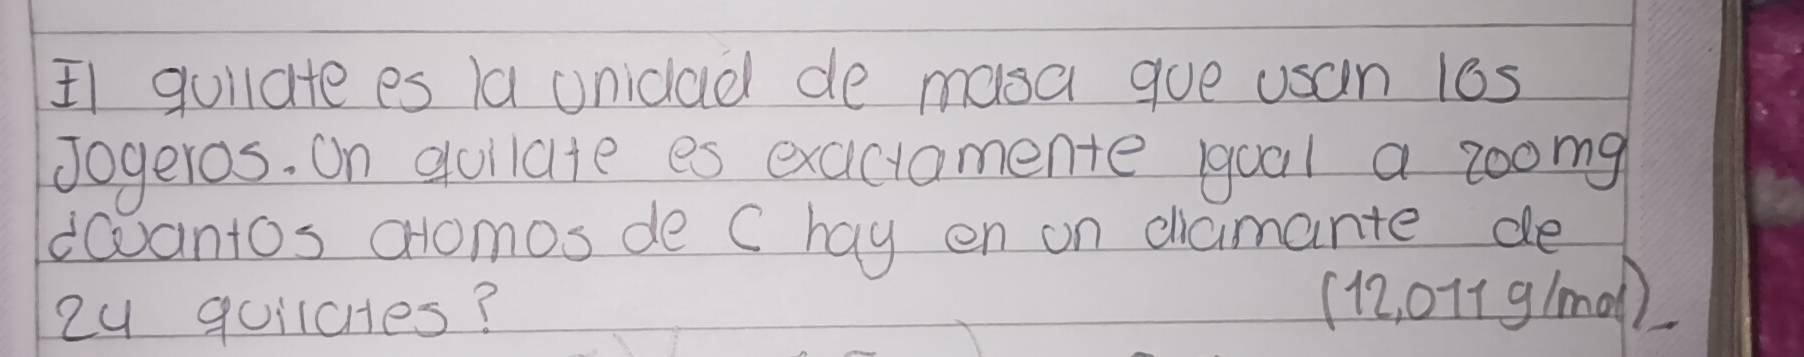 El quilate es la unidad de masa que usan los
Jogeros. Un quilate es exactamente igual a 200mg
¿Cuantos atomos de C hay en un diamante de
24 quilates? (12,011 g/mol)_